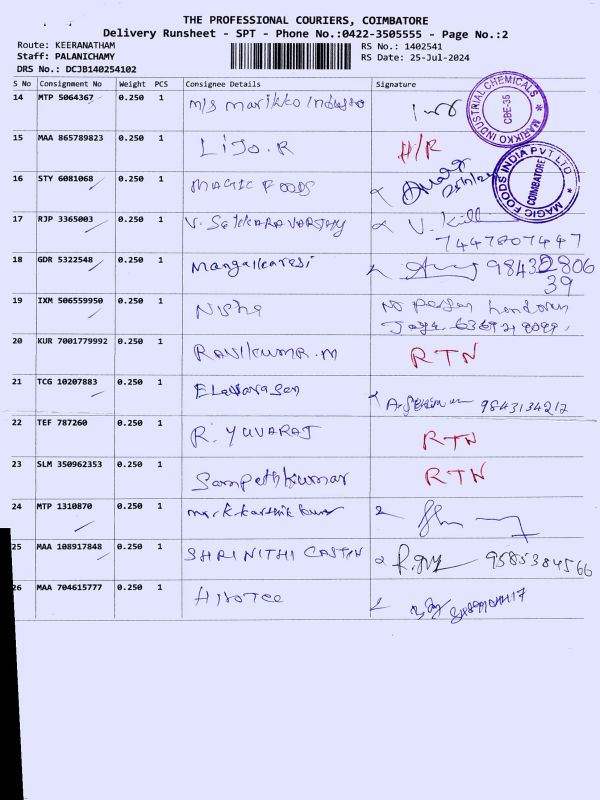 THE PROFESSIONAL COURIERS, COIMBATORE
Delivery Runsheet - SPT - Phone No.:0422-3505555 - Page No.:2
Route: KEERANATHAM RS No.: 1402541
Staff: PALANICHAMY RS Date: 25-Jul-2024
DRS No.: DCJB140254102
S No Consignment No Weight PCS Consignee Details Signature
14 MTP 5064367 0.250 1 M/s Marikko Industo
MARIKKO INDUSTRIAL CHEMICALS * CBE-35 *
15 MAA 865789823 0.250 1 LIJO.R H/R
16 STY 6081068 0.250 1 MAGIC FOODS
MAGIC FOODS INDIA PVT LTD * COIMBATORE
17 RJP 3365003 0.250 1 V. SakkARAVARTHY V. Kill
7447807447
18 GDR 5322548 0.250 1 Mangalkaresi 98432806
39
19 IXM 506559950 0.250 1 Nisha No Person handover
20 KUR 7001779992 0.250 1 RAVIKUMAR.M RTN
21 TCG 10207883 0.250 1 Elavarasan 9843134217
22 TEF 787260 0.250 1 R. YUVARAJ RTN
23 SLM 350962353 0.250 1 Sampathkumar RTN
24 MTP 1310870 0.250 1 Mr. K. Karthik kumar
25 MAA 108917848 0.250 1 SHRINITHI CASTIN 9585384566
26 MAA 704615777 0.250 1